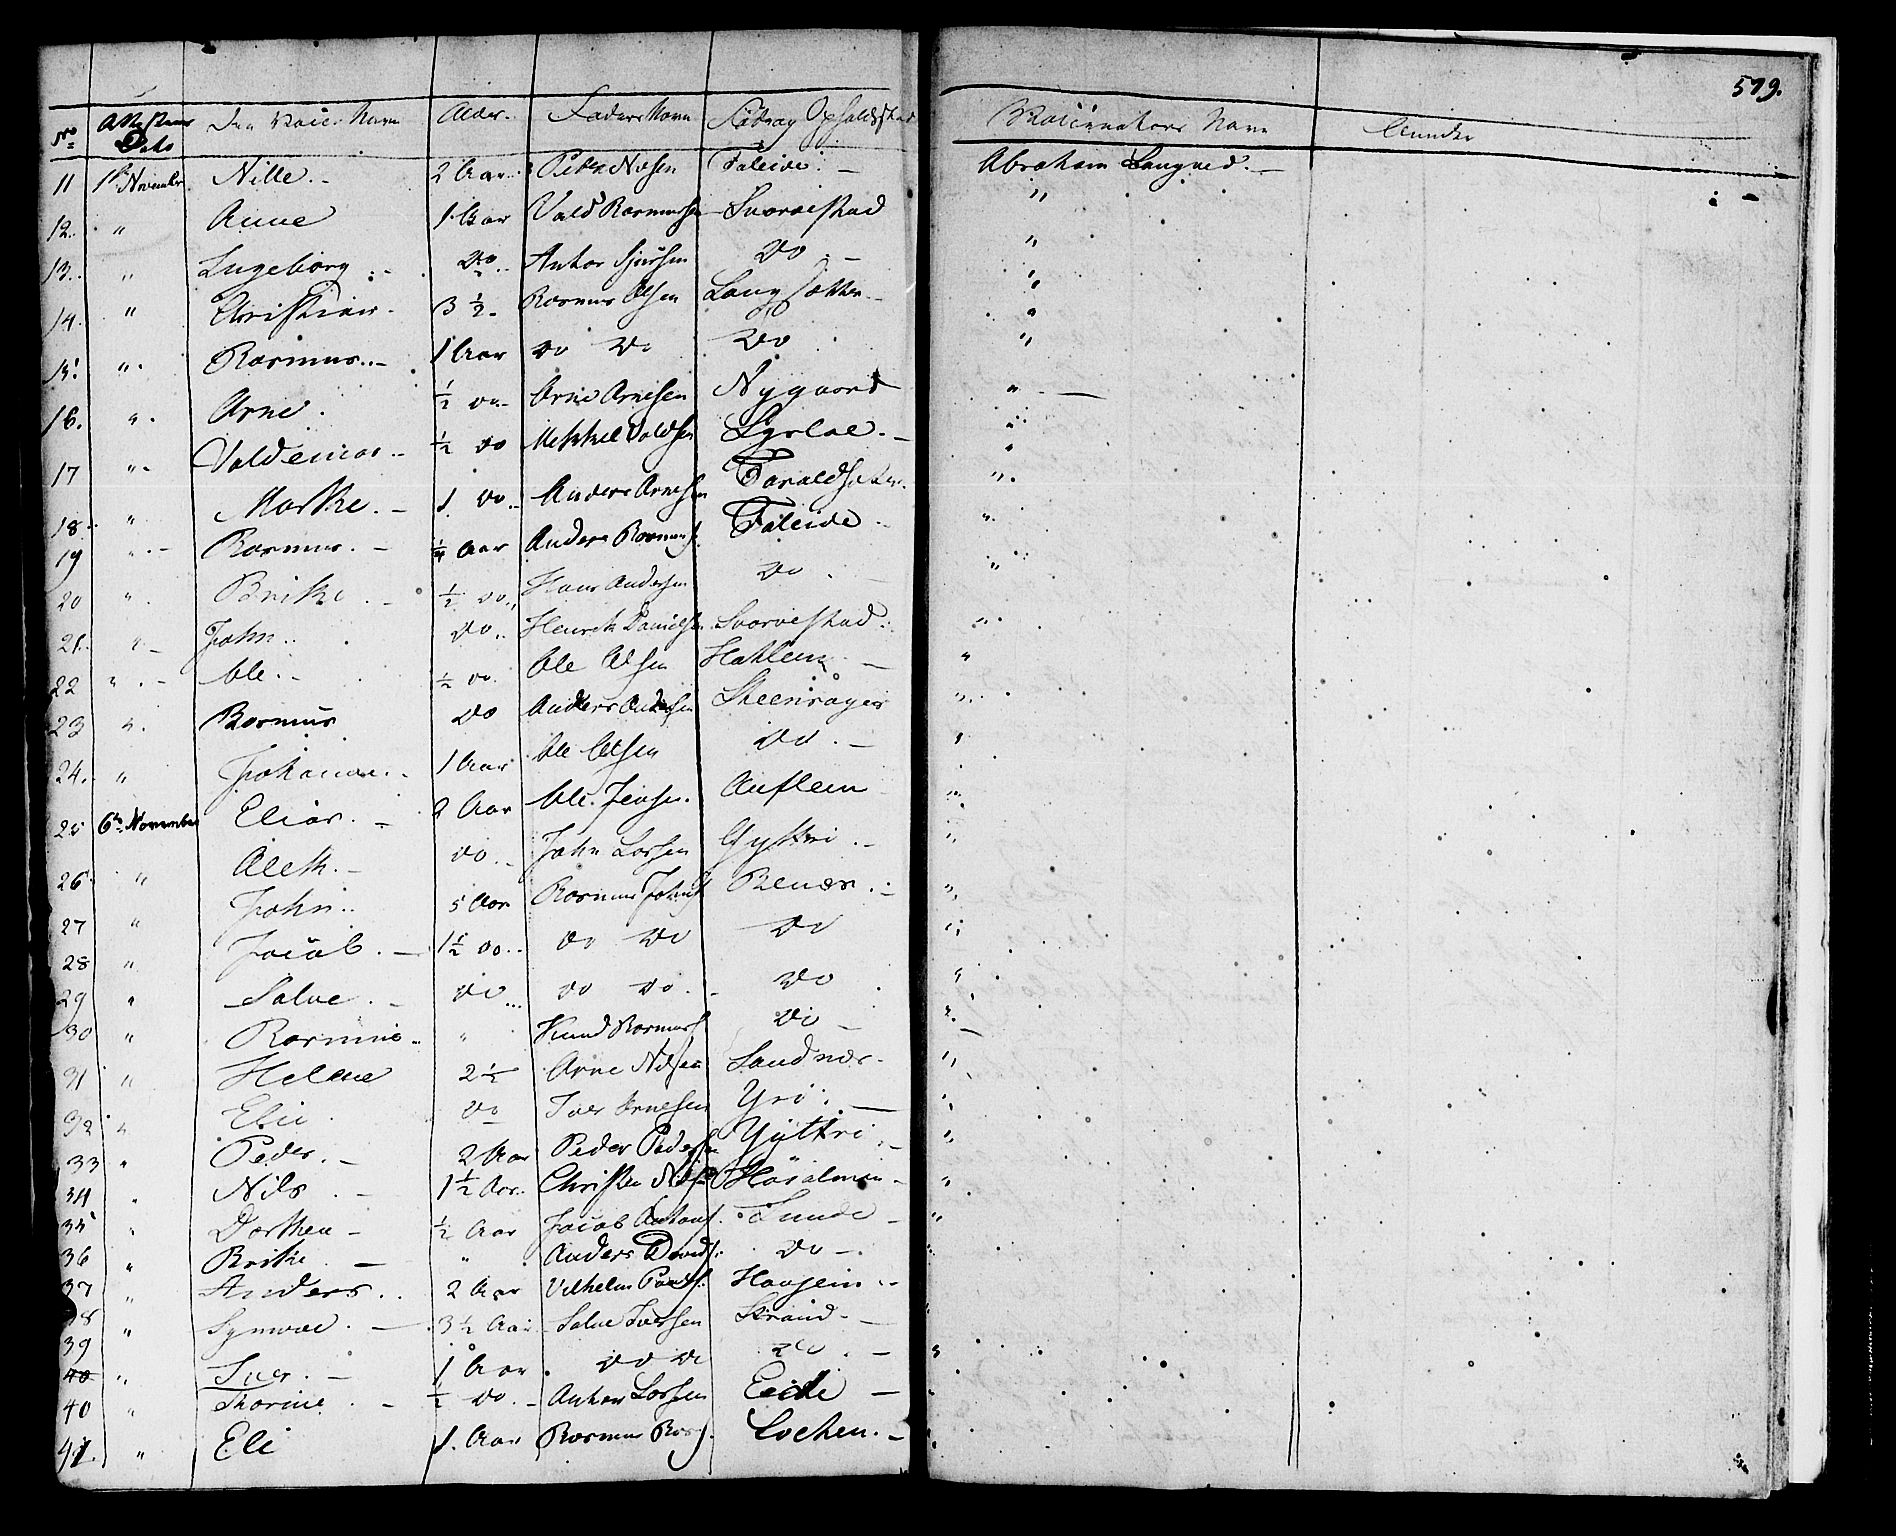 579.
No Attestens Dato Den Vacc: Navn Alder. Faders Navn Føde og Opholdsstad Vaccinateurs Navn
11 1ste November Nille. 2 Aar Peder Nilsen Faleide. Abraham Langved.
12. " Anne 1 Aar Vald Rasmussen Svorestad "
13. " Ingeborg Do Anton Do "
14. " Christian. 3 ½ Rasmus Olsen Langsætter "
15. " Rasmus. 1 Aar Do Do Do "
16. " Arne ½ Do Arne Arnesen Nygaard "
17 " Valdemar ½ Do Mikkel Valdsen "
18. " Marthe. 1 Do Anders Arnesen Taraldsæter "
19 " Rasmus. ¼ Aar Anders Rasmus. Faleide "
20 " Brithe ½ Do Hans Andersen Do "
21. " John Do Henrik Danielsen Svorestad "
22 " Ole ½ Do Ole Olsen Hahlem "
23 " Rasmus Do Anders Andersen Steensager "
24. " Johanne 1 Aar Ole Olsen Do "
25 6te November Elias. 2 Aar Ole Jensen. Auflem "
26 " Aleth. Do John Larsen Gyttri "
27 " John 5 Aar Rasmus Johns Renær. "
28 " Jacob. 1½ Do Do Do Do "
29 " Salve. Do Do Do Do "
30 " Rasmus " Knud Rasmuss Do "
31 " Helene 2½ Arne Nilsen Sandnær. "
32 " Elie Do Iver Arnesen Yri. "
33 " Peder. 2 Aar Peder Pedersen Gyttri "
34 " Nils 1½ Aar Christen Nilsen "
35 " Dorthea ½ Aar Jacob Antons. Tunde "
36 " Brithe " Anders Davids: Do "
37 " Anders 2 Aar Vilhelm Pauls: Haugein "
38 " Synneve 3½ Aar Salve Iversen Strand
39
40 " Iver. 1 Aar Do Do Do "
40 " Thorine ½ Do Anton Larsen Eide
41. " Eli 1. Aar Rasmus Ras. Lochen.